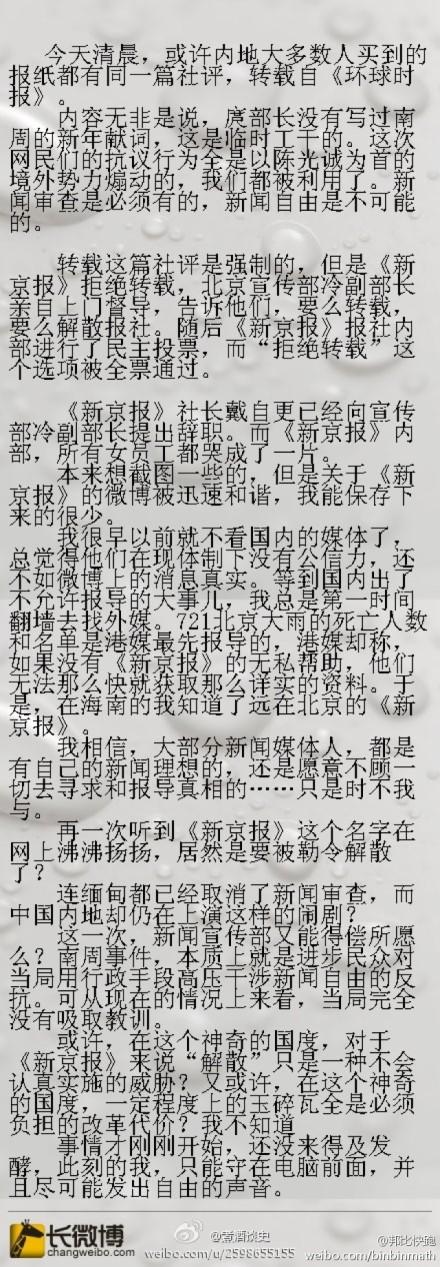 今天清晨，或许内地大多数人买到的
报纸都有同一篇社评，转载自《环球时
报》。
内容无非是说，庹部长没有写过南
周的新年献词，这是临时工干的。这次
网民们的抗议行为全是以陈光诚为首的
境外势力煽动的，我们都被利用了。新
闻审查是必须有的，新闻自由是不可能
的。
转载这篇社评是强制的，但是《新
京报》拒绝转载，北京宣传部冷副部长
亲自上门督导，告诉他们，要么转载，
要么解散报社。随后《新京报》报社内
部进行了民主投票，而“拒绝转载”这
个选项被全票通过。
《新京报》社长戴自更已经向宣传
部冷副部长提出辞职。而《新京报》内
部，所有女员工都哭成了一片。
本来想截图一些的，但是关于《新
京报》的微博被迅速和谐，我能保存下
来的很少。
我很早以前就不看国内的媒体了，
总觉得他们在现体制下没有公信力，还
不如微博上的消息真实。等到国内出了
不允许报导的大事儿，我总是第一时间
翻墙去找外媒。721北京大雨的死亡人数
和名单是港媒最先报导的，港媒却称，
如果没有《新京报》的无私帮助，他们
无法那么快就获取那么详实的资料。于
是，在海南的我知道了远在北京的《新
京报》。
我相信，大部分新闻媒体人，都是
有自己的新闻理想的，还是愿意不顾一
切去寻求和报导真相的……只是时不我
与。
再一次听到《新京报》这个名字在
网上沸沸扬扬，居然是要被勒令解散
了？
连缅甸都已经取消了新闻审查，而
中国内地却仍在上演这样的闹剧？
这一次，新闻宣传部又能得偿所愿
么？南周事件，本质上就是进步民众对
当局用行政手段高压干涉新闻自由的反
抗。可从现在的情况上来看，当局完全
没有吸取教训。
或许，在这个神奇的国度，对于
《新京报》来说“解散”只是一种不会
认真实施的威胁？又或许，在这个神奇
的国度，一定程度上的玉碎瓦全是必须
负担的改革代价？我不知道
事情才刚刚开始，还没来得及发
酵，此刻的我，只能守在电脑前面，并
且尽可能发出自由的声音。
长微博
changweibo.com
weibo.com/u/2598655155
@邦比快跑
weibo.com/binbinmath